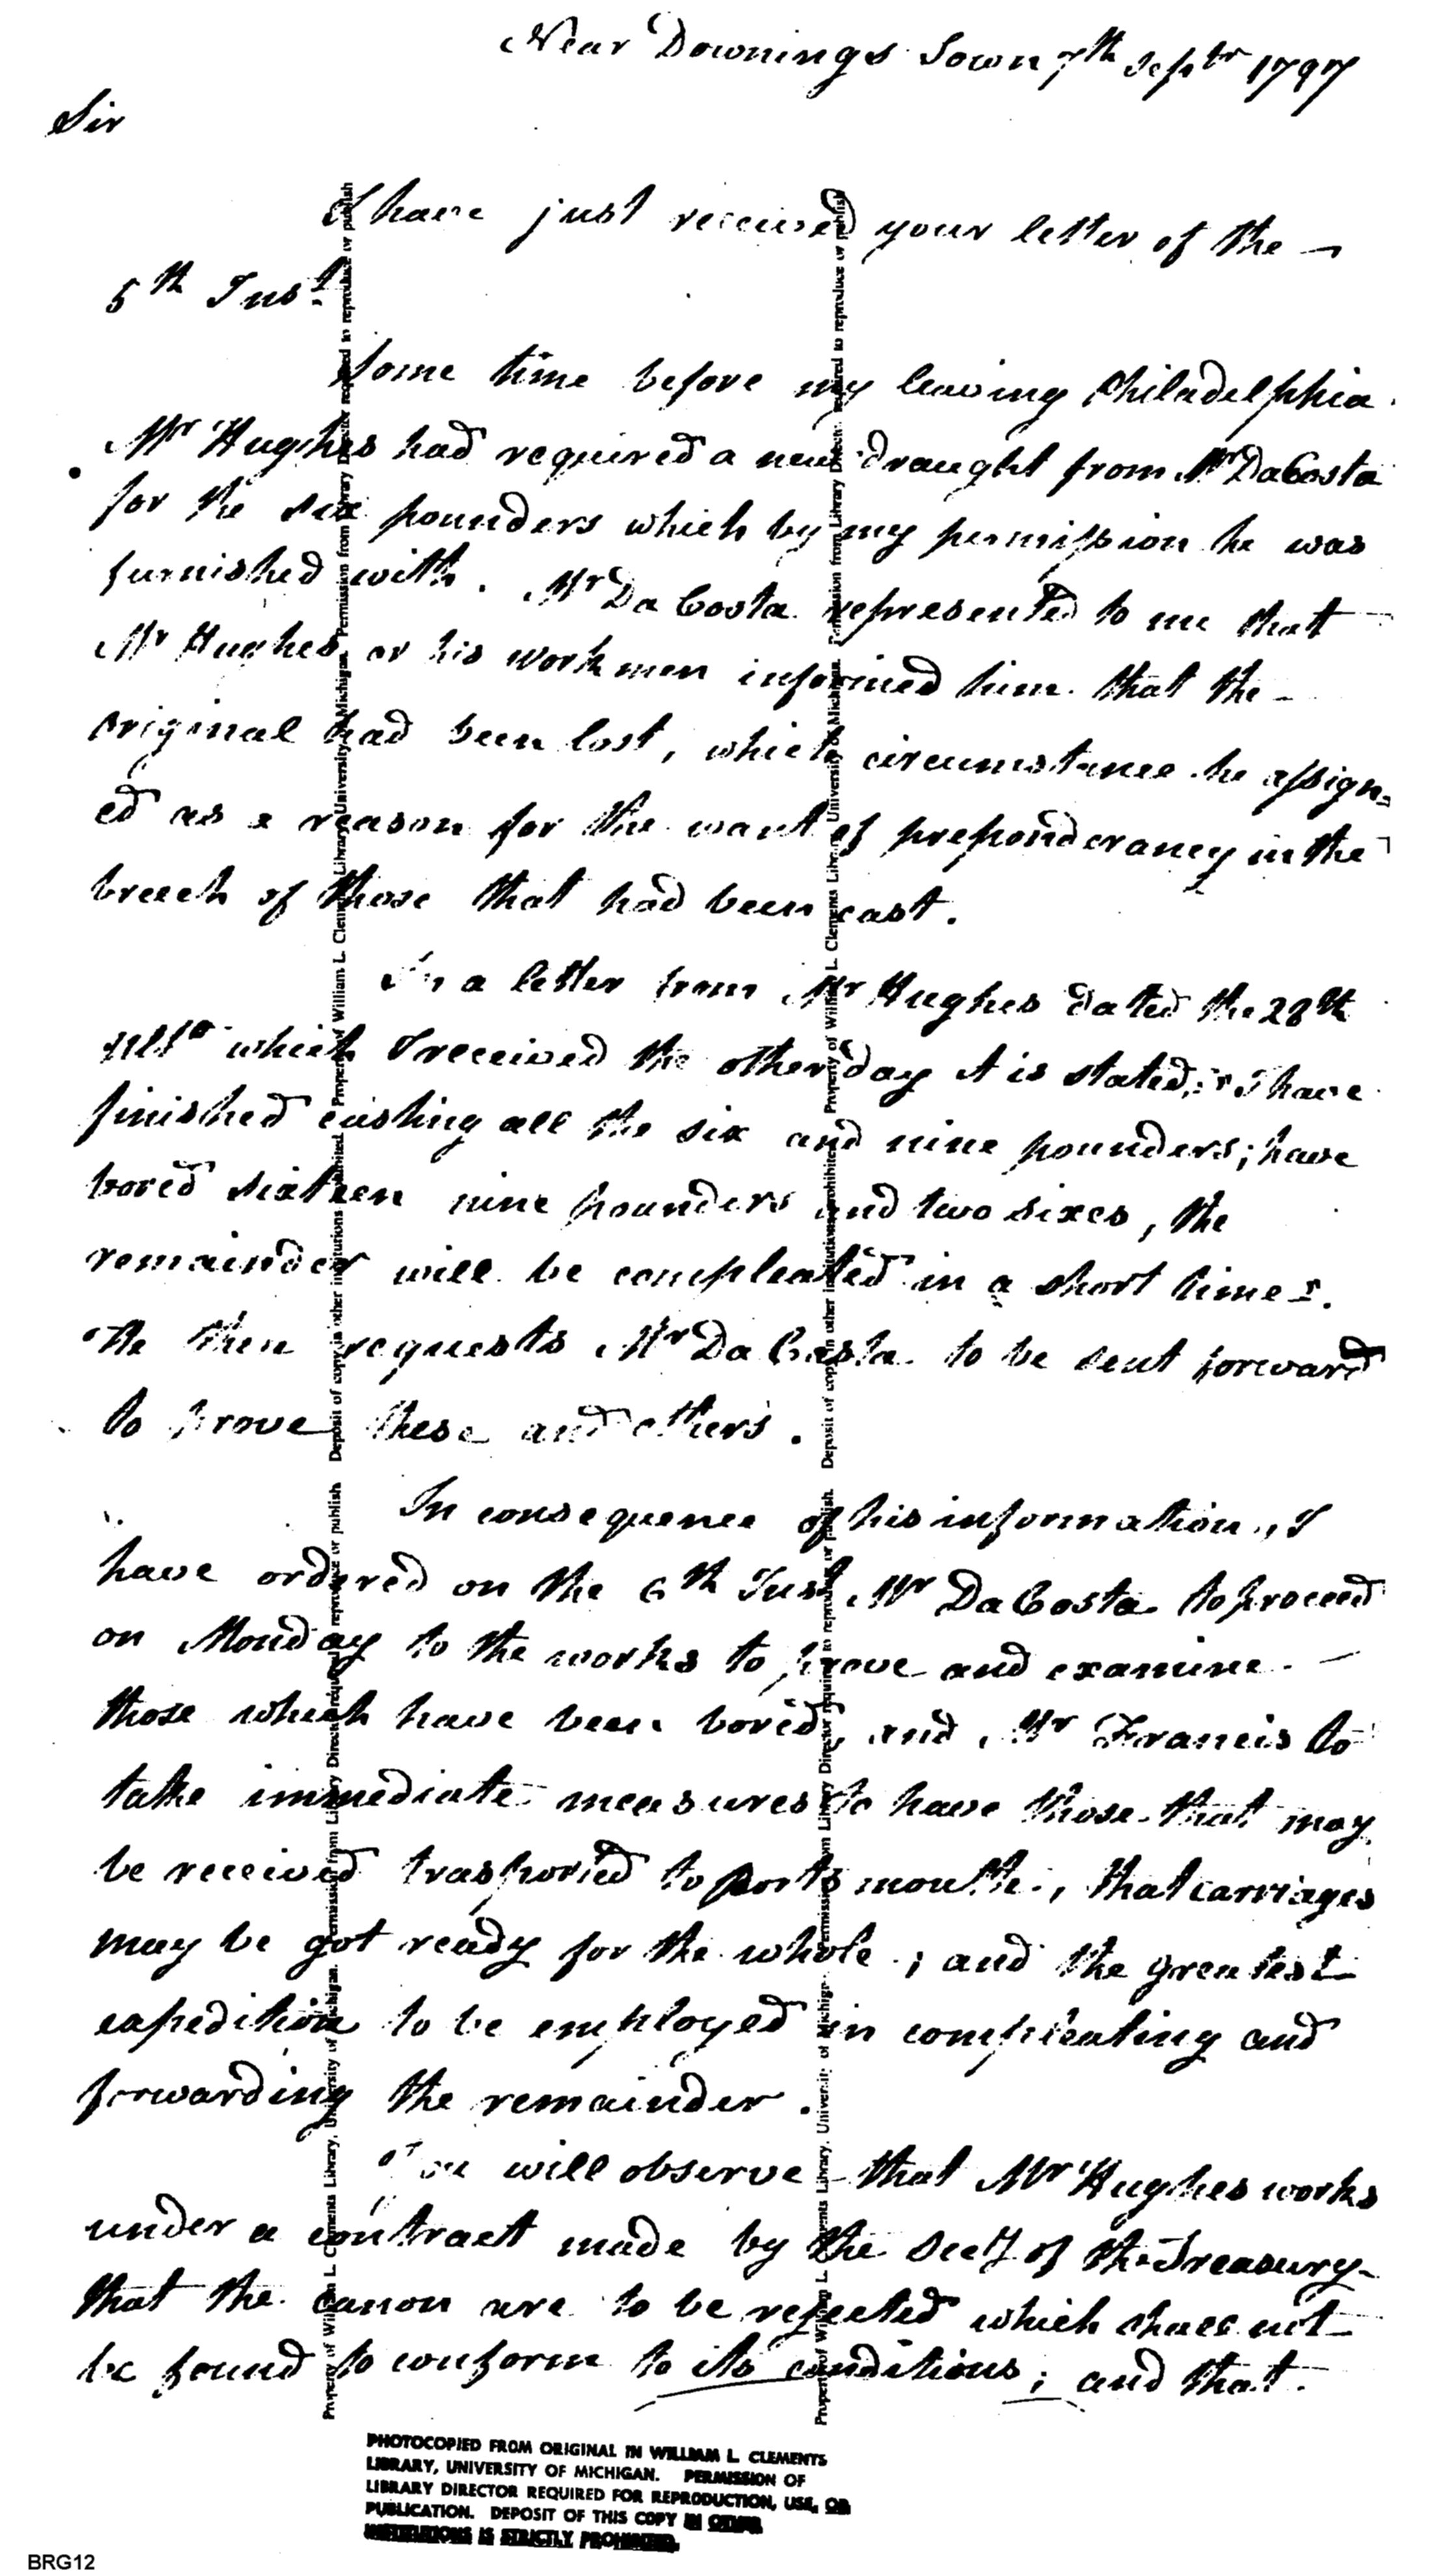 Near Downings Town 7th Septbr 1797
Sir
I have just received your letter of the
5th Inst
Some time before my leaving Philadelphia
Mr Hughes had required a new draught from Mr DaCosta
for the six pounders which by my permission he was
furnished with. Mr Da Costa represented to me that
Mr Hughes or his workmen informed him that the
original had been lost, which circumstance he assign=
ed as a reason for the want of preponderancy in the
breech of those that had been cast.
In a letter from Mr Hughes dated the 28th
ulto which I received the other day it is stated, "I have
finished casting all the six and nine pounders; have
bored sixteen nine pounders and two sixes, the
remainder will be compleated in a short time".
He then requests Mr Da Costa to be sent forward
to prove these and others.
In consequence of his information, I
have ordered on the 6th Inst Mr Da Costa to proceed
on Monday to the works to prove and examine
those which have been bored, and Mr Francis to
take immediate measures to have those that may
be received trasported to portsmouth, that carriages
may be got ready for the whole; and the greatest
expedition to be employed in compleating and
forwarding the remainder.
You will observe that Mr Hughes works
under a contract made by the Secy of the Treasury
that the canon are to be rejected which shall not
be found to conform to its conditions; and that
PHOTOCOPIED FROM ORIGINAL IN WILLIAM L. CLEMENTS
LIBRARY, UNIVERSITY OF MICHIGAN. PERMISSION OF
LIBRARY DIRECTOR REQUIRED FOR REPRODUCTION, USE, OR
PUBLICATION. DEPOSIT OF THIS COPY IN OTHER
INSTITUTIONS IS STRICTLY PROHIBITED.
BRG12
Property of William L. Clements Library, University of Michigan. Permission from Library Director required to reproduce or publish. Deposit of copy in other institutions prohibited. Property of William L. Clements Library, University of Michigan. Permission from Library Director required to reproduce or publish
Property of William L. Clements Library, University of Michigan. Permission from Library Director required to reproduce or publish. Deposit of copy in other institutions prohibited. Property of William L. Clements Library, University of Michigan. Permission from Library Director required to reproduce or publish